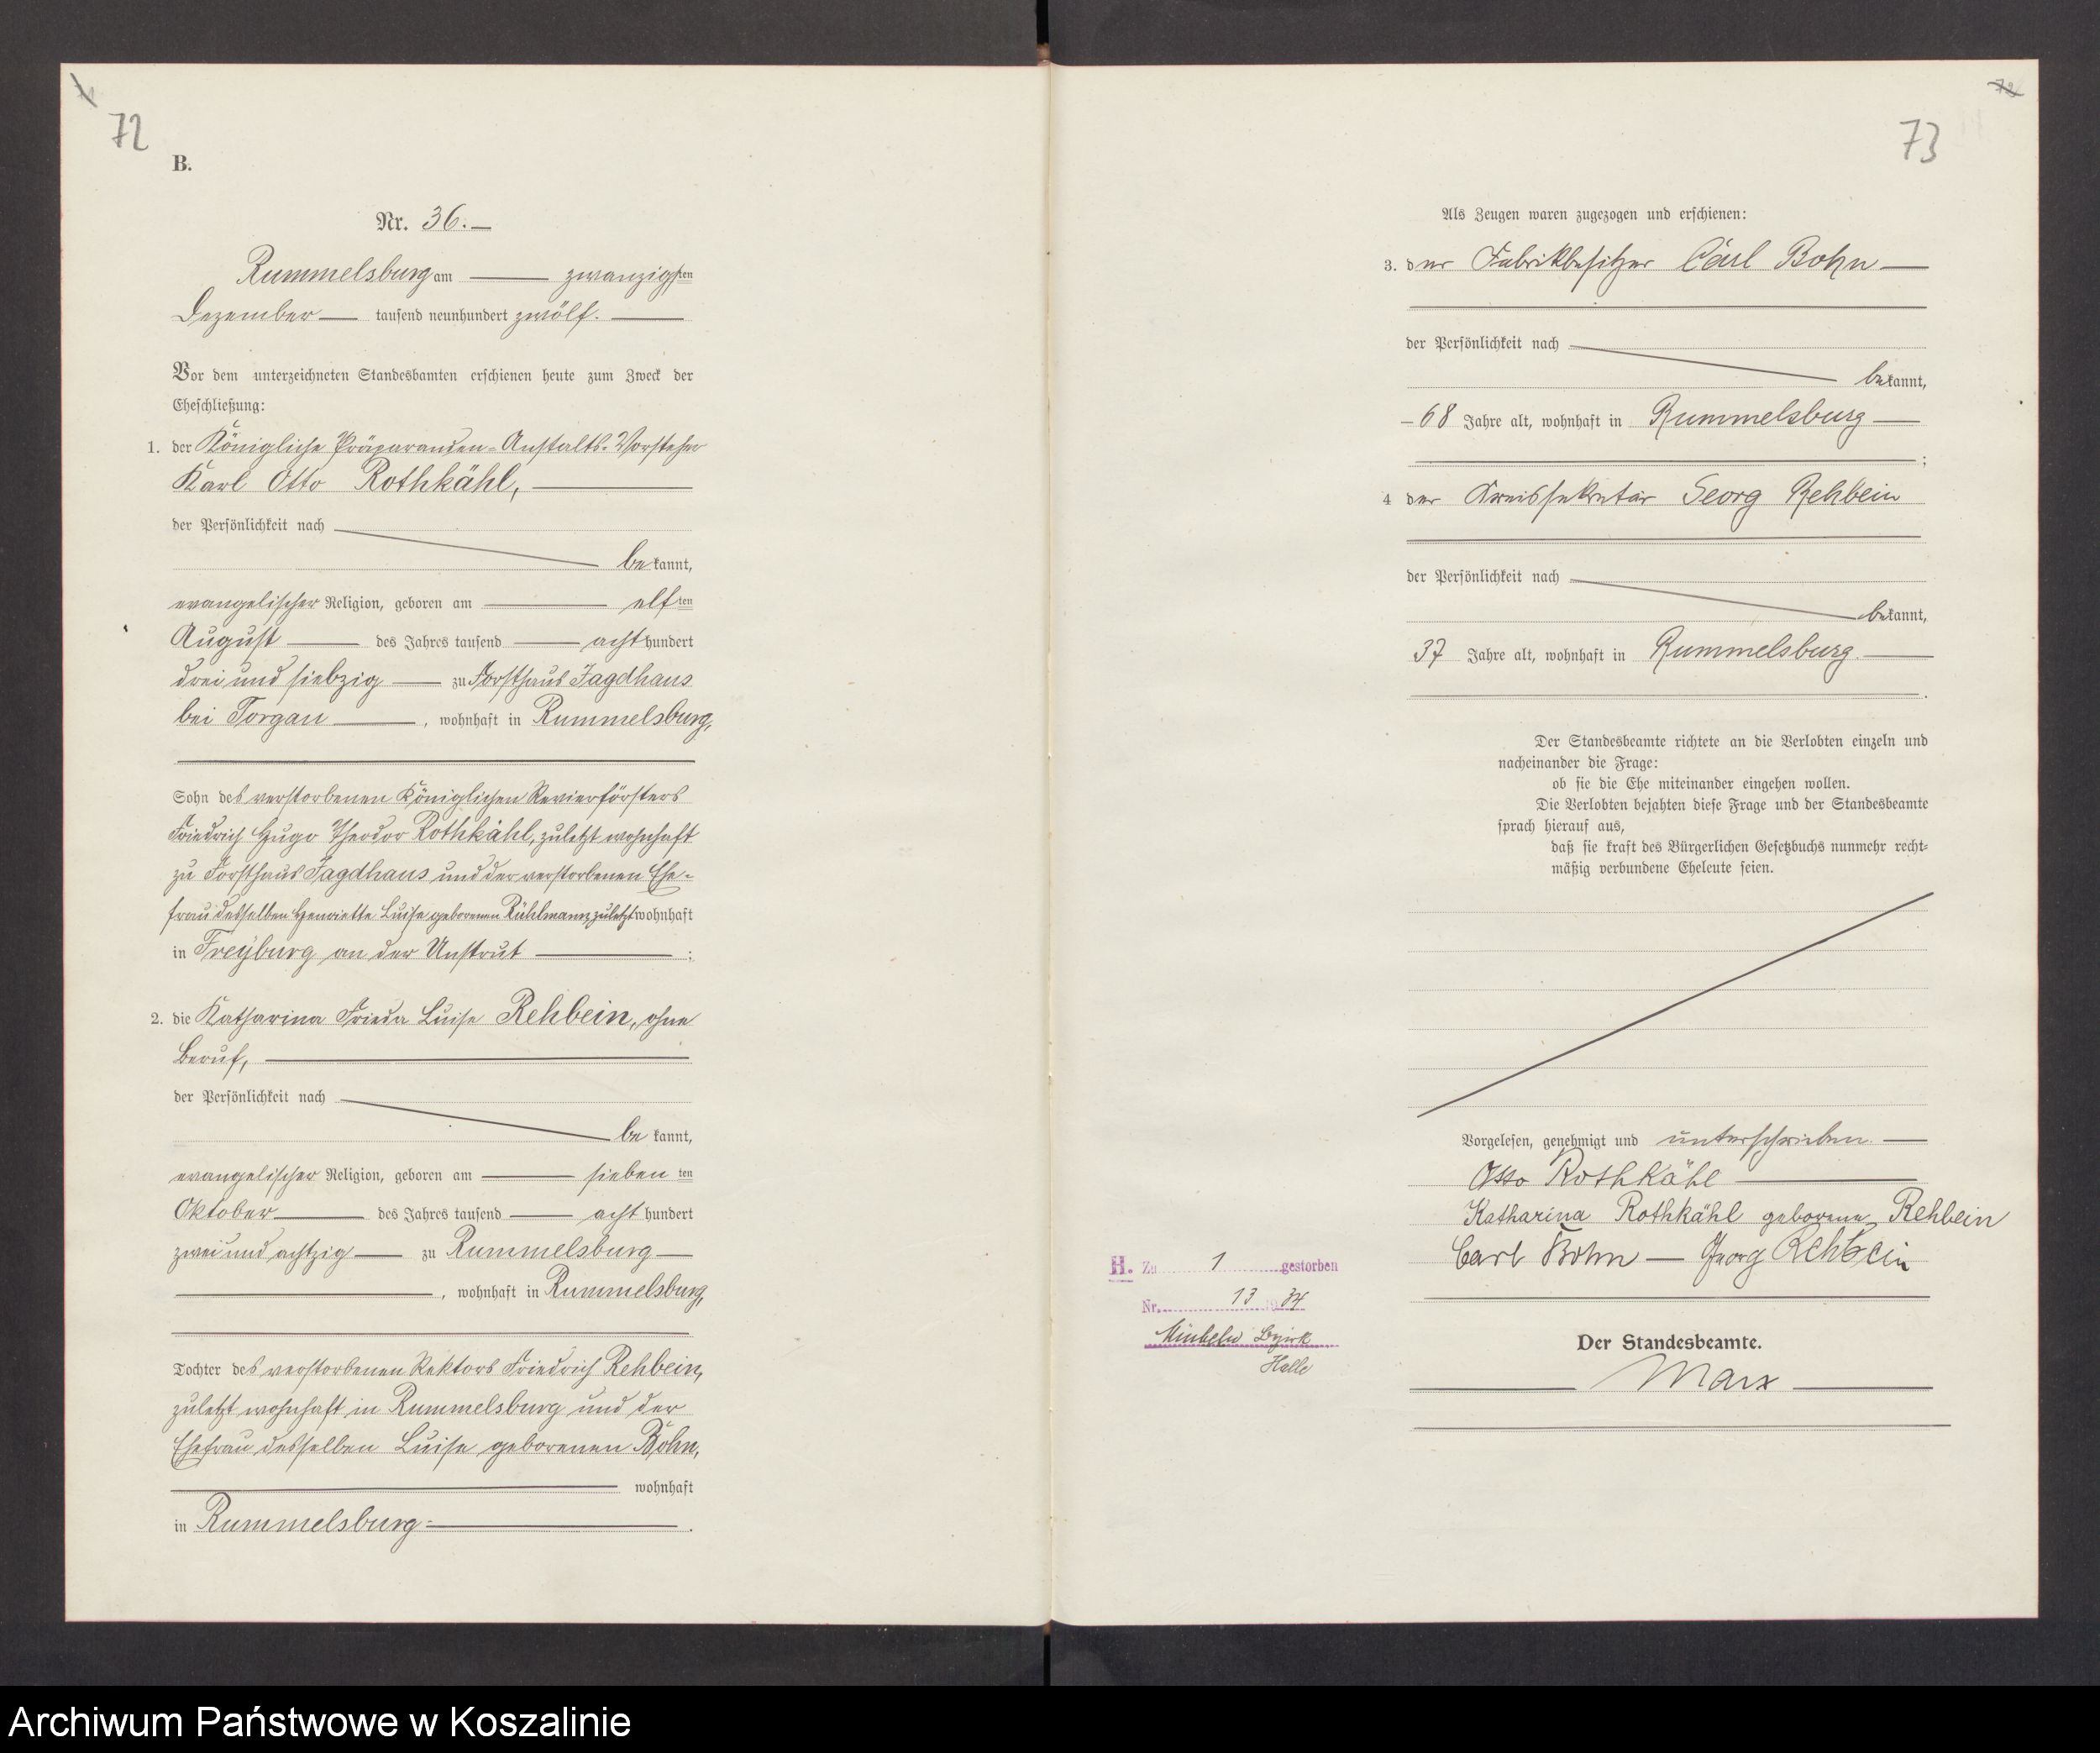 72
B.
Nr. 36.
Rummelsburg am zwanzigsten
Dezember tausend neunhundert zwölf.
Vor dem unterzeichneten Standesbamten erschienen heute zum Zweck der
Eheschließung:
1. der Königliche Präparanden-Anstalts-Vorsteher
Karl Otto Rothkähl,
der Persönlichkeit nach
bekannt,
evangelischer Religion, geboren am elften
August des Jahres tausend achthundert
drei und siebzig zu Forsthaus Jagdhaus
bei Torgau, wohnhaft in Rummelsburg,
Sohn des verstorbenen Königlichen Revierförsters
Friedrich Hugo Theodor Rothkähl, zuletzt wohnhaft
zu Forsthaus Jagdhaus und der verstorbenen Ehe-
frau desselben Henriette Luise geborenen Rühlmann, zuletzt wohnhaft
in Freyburg an der Unstrut ;
2. die Katharina Frieda Luise Rehbein, ohne
Beruf,
der Persönlichkeit nach
bekannt,
evangelischer Religion, geboren am siebenten
Oktober des Jahres tausend achthundert
zwei und achtzig zu Rummelsburg
, wohnhaft in Rummelsburg,
Tochter des verstorbenen Rektors Friedrich Rehbein,
zuletzt wohnhaft in Rummelsburg und der
Ehefrau desselben Luise geborenen Bohn,
wohnhaft
in Rummelsburg.
73
Als Zeugen waren zugezogen und erschienen:
3. der Fabrikbesitzer Carl Bohn
der Persönlichkeit nach
bekannt,
68 Jahre alt, wohnhaft in Rummelsburg
;
4 der Kreissekretär Georg Rehbein
der Persönlichkeit nach
bekannt,
37 Jahre alt, wohnhaft in Rummelsburg.
Der Standesbeamte richtete an die Verlobten einzeln und
nacheinander die Frage:
ob sie die Ehe miteinander eingehen wollen.
Die Verlobten bejahten diese Frage und der Standesbeamte
sprach hierauf aus,
daß sie kraft des Bürgerlichen Gesetzbuchs nunmehr recht-
mäßig verbundene Eheleute seien.
Vorgelesen, genehmigt und unterschrieben.
Otto Rothkähl
Katharina Rothkähl geborene Rehbein
Carl Bohn — Georg Rehbein
Der Standesbeamte.
Marx
H. Zu 1 gestorben
Nr. 13 34
Bezirk
Halle
Archiwum Państwowe w Koszalinie